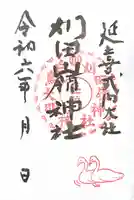 延喜式内大社
刈田嶺神社
令和六年 月 日